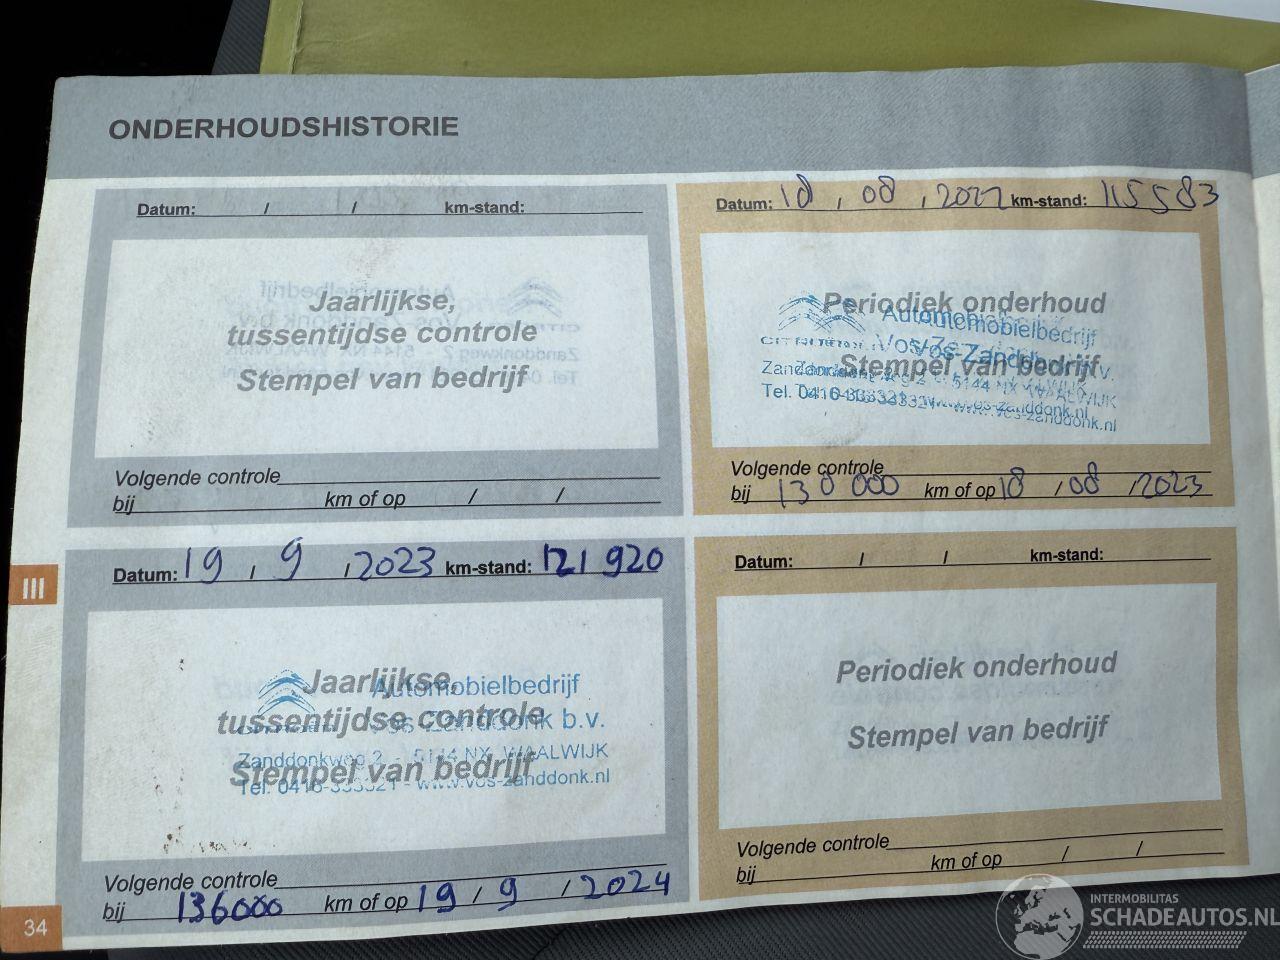 ONDERHOUDSHISTORIE
Datum: / / km-stand:
Jaarlijkse,
tussentijdse controle
Stempel van bedrijf
Volgende controle
bij km of op / /
Datum: 18 / 08 / 2022 km-stand: 115583
Periodiek onderhoud
Stempel van bedrijf
Automobielbedrijf
Vos-Zanddonk b.v.
5144 NX WAALWIJK
Tel. 0416-333321 - www.vos-zanddonk.nl
Volgende controle
bij 130 000 km of op 18 / 08 / 2023
III
Datum: 19 / 9 / 2023 km-stand: 121920
Jaarlijkse,
tussentijdse controle
Stempel van bedrijf
Automobielbedrijf
Vos-Zanddonk b.v.
Zanddonkweg 2 - 5144 NX WAALWIJK
Tel. 0416-333321 - www.vos-zanddonk.nl
Volgende controle
bij 136000 km of op 19 / 9 / 2024
Datum: / / km-stand:
Periodiek onderhoud
Stempel van bedrijf
Volgende controle
bij km of op / /
34
INTERMOBILITAS
SCHADEAUTOS.NL